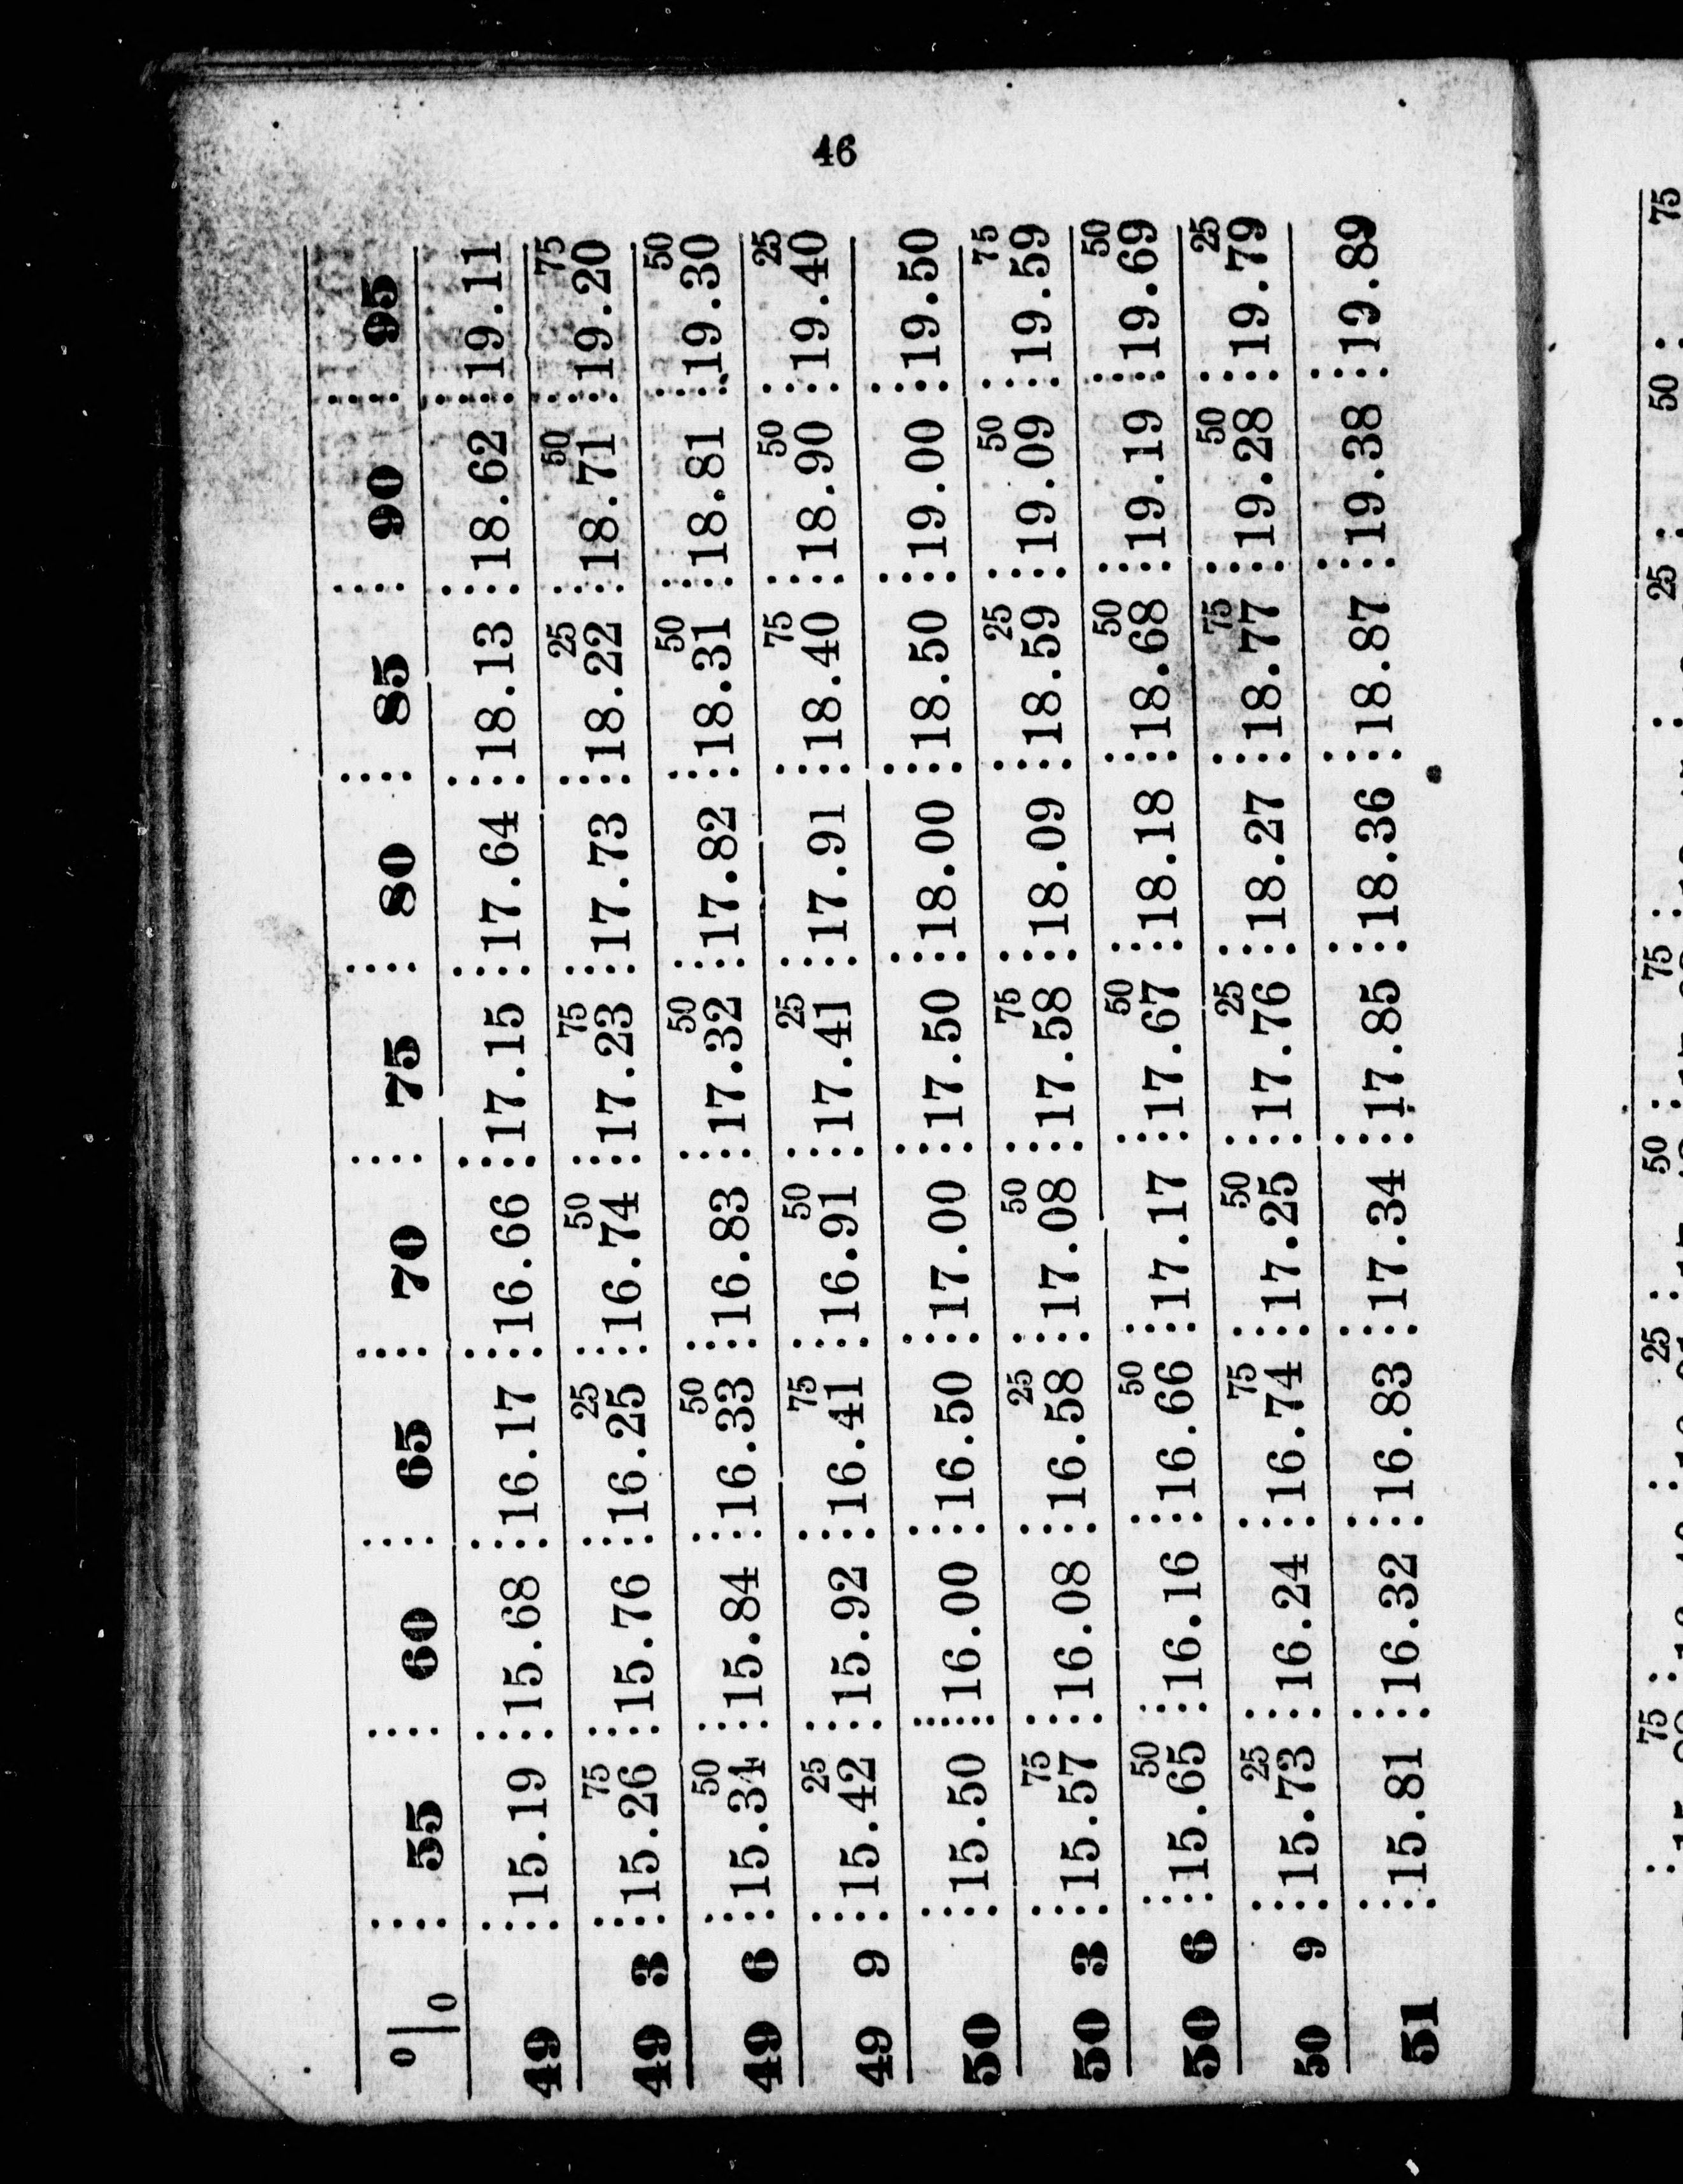 46
0/0 : 55 : 60 : 65 : 70 : 75 : 80 : 85 : 90 : 95
49 : 15.19 : 15.68 : 16.17 : 16.66 : 17.15 : 17.64 : 18.13 : 18.62 : 19.11
75 25 50 75 25 50 75
49 3 : 15.26 : 15.76 : 16.25 : 16.74 : 17.23 : 17.73 : 18.22 : 18.71 : 19.20
50 50 50 50 50
49 6 : 15.34 : 15.84 : 16.33 : 16.83 : 17.32 : 17.82 : 18.31 : 18.81 : 19.30
25 75 50 25 75 50 25
49 9 : 15.42 : 15.92 : 16.41 : 16.91 : 17.41 : 17.91 : 18.40 : 18.90 : 19.40
50 : 15.50 : 16.00 : 16.50 : 17.00 : 17.50 : 18.00 : 18.50 : 19.00 : 19.50
75 25 50 75 25 50 75
50 3 : 15.57 : 16.08 : 16.58 : 17.08 : 17.58 : 18.09 : 18.59 : 19.09 : 19.59
50 50 50 50 50
50 6 : 15.65 : 16.16 : 16.66 : 17.17 : 17.67 : 18.18 : 18.68 : 19.19 : 19.69
25 75 50 25 75 50 25
50 9 : 15.73 : 16.24 : 16.74 : 17.25 : 17.76 : 18.27 : 18.77 : 19.28 : 19.79
51 : 15.81 : 16.32 : 16.83 : 17.34 : 17.85 : 18.36 : 18.87 : 19.38 : 19.89
75 25 50 75 25 50 75